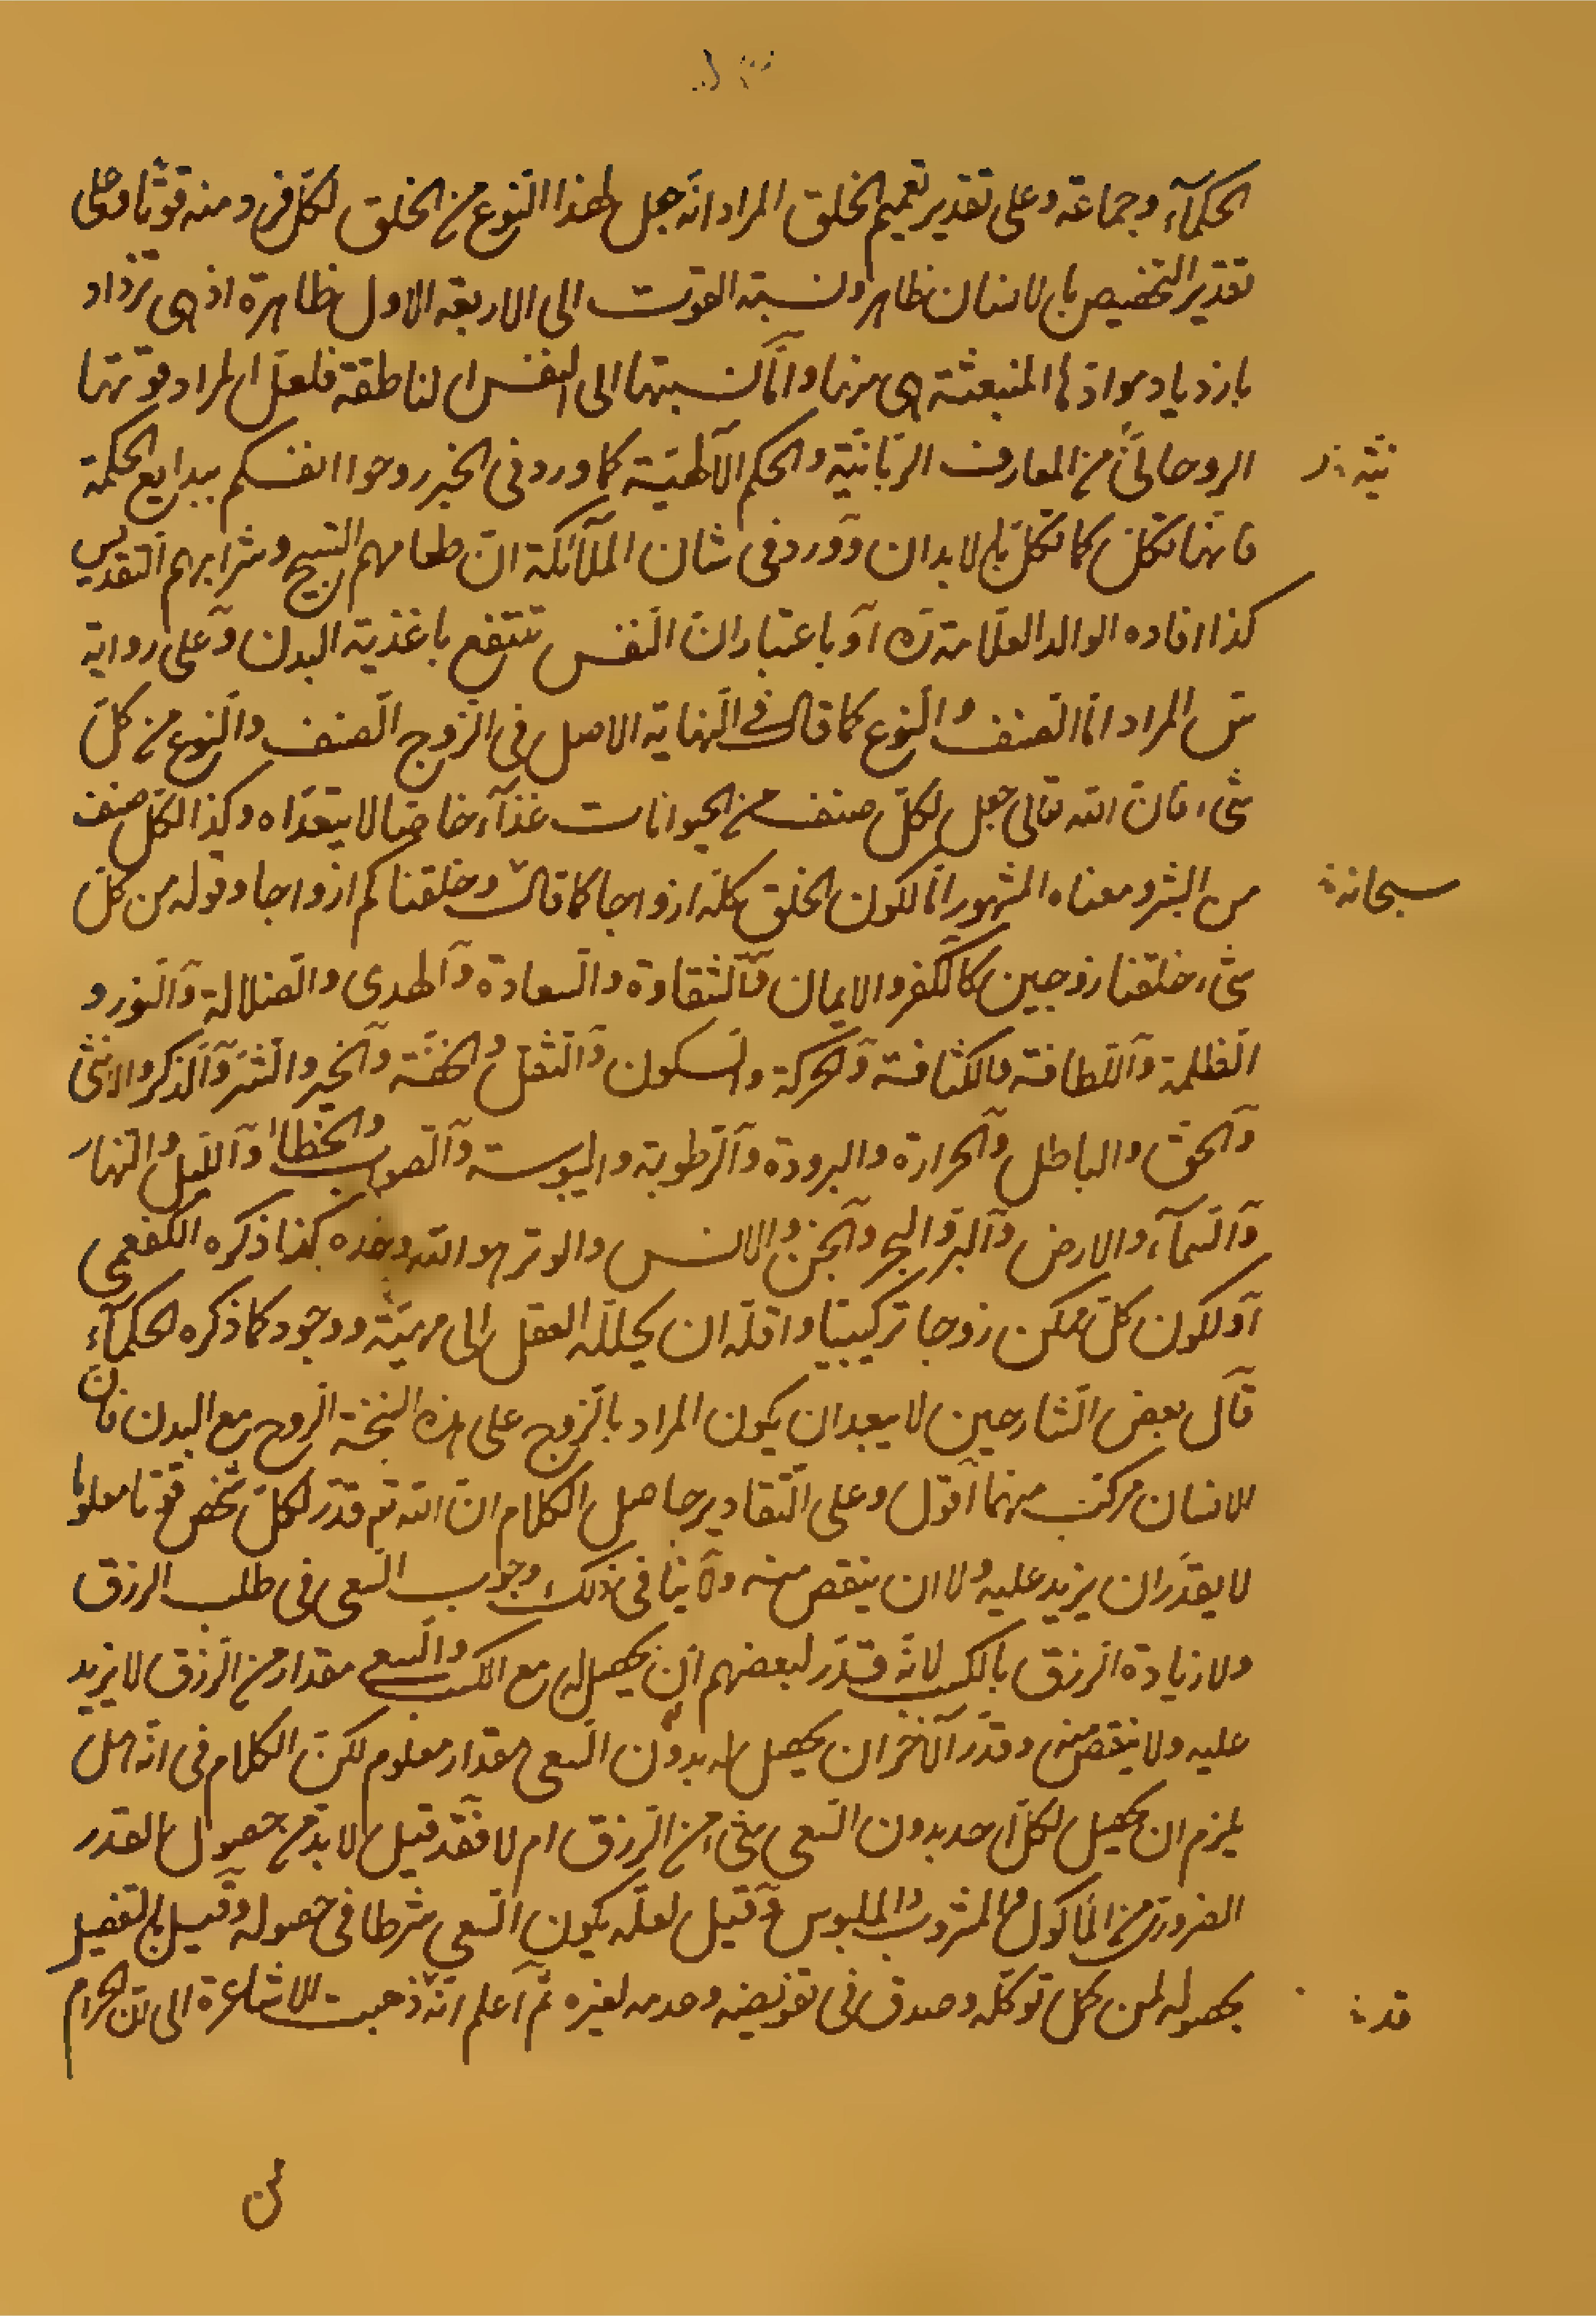 الحكمآء وجماعة وعلى تقدير تعميم الخلق المراد انّه جعل لهذا النّوع من الخلق لكلّ فرد منه قوتا وعلى
تقدير التخصيص بالانسان ظاهر ونسبة القوت الى الاربعة الاول ظاهرة اذ هى تزداد
بازدياد موادّها المنبعثة هى منها وامّا نسبتها الى النفس الناطقة فلعلّ المراد قوتها
الروحانىّ من المعارف الربّانيّة والحكم الآلهيّة كما ورد فى الخبر روحوا انفسكم ببدايع الحكمة
نيّة
فانها تكلّ كما تكلّ الابدان وورد فى شان الملآئكة انّ طعامهم التسبيح وشرابهم التقديس
كذا افاده الوالد العلّامة ره او باعتبار انّ النّفس تنتفع باغذية البدن وعلى رواية
س المراد امّا الصّنف والنّوع كما قال فى النّهاية الاصل فى الزّوج الصّنف والنّوع من كلّ
شىء فانّ الله تعالى جعل لكلّ صنف من الحيوانات غذآء خاصّا لا يتعدّاه وكذا لكلّ صنف
من البشر ومعناه المشهور امّا لكون الخلق كلّه ازواجا كما قال وخلقناكم ازواجا وقوله من كلّ
سبحانه
شىء خلقنا زوجين كالكفر والايمان والشّقاوة والسّعادة والهدى والضّلالة والنّور و
الظلمة واللّطافة والكثافة والحركة والسكون والثّقل والخفّة والخير والشّر والذّكر والانثى
والحقّ والباطل والحرارة والبرودة والرّطوبة واليبوسة والصّواب والخطأ واللّيل والنّهار
والسّمآء والارض والبرّ والبحر والجنّ والانس والوتر هو الله وحده كذا ذكره الكفعمى
او لكون كلّ ممكن زوجا تركيبيّا واقلّه ان يحلّله العقل الى مهيّة ووجود كما ذكره الحكمآء
قال بعض الشّارحين لا يبعد ان يكون المراد بالزّوج على هذه النسخة الرّوح مع البدن فانّ
الانسان مركّب منهما اقول وعلى التّقادير حاصل الكلام انّ الله تع قدّر لكلّ شخص قوتا معلوما
لا يقدر ان يزيد عليه ولا ان ينقص منه ولا ينافى ذلك وجوب السّعى فى طلب الرزق
ولا زيادة الرزق بالكسب لانّه قدّر لبعضهم ان يحصل له مع الكسب والسّعى مقدار من الرّزق لا يزيد
عليه ولا ينقص منه وقدّر لآخر ان يحصل له بدون السّعى مقدار معلوم لكنّ الكلام فى انّه هل
يلزم ان يحصل لكلّ احد بدون السّعى شىء من الرّزق ام لا فقد قيل لا بدّ من حصول القدر
الضرورى من المأكول والمشروب والملبوس وقيل لعلّه يكون السّعى شرطا فى حصوله وقيل بالتفصيل
بحصوله لمن كمل توكّله وصدق فى تفويضه وعدمه لغيره ثم اعلم انّه ذهبت الاشاعرة الى انّ الحرام
قد